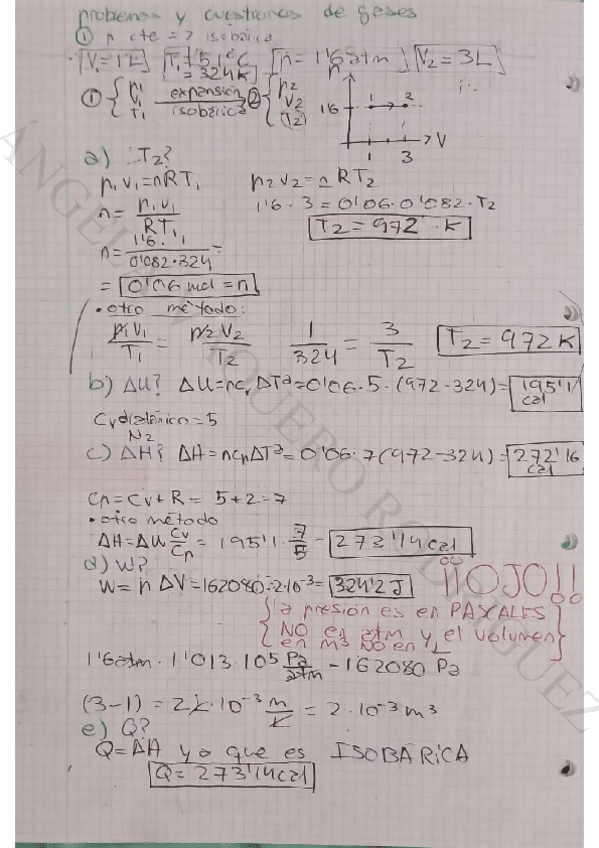 problemas y cuestiones de gases
① p cte => isobárica
V₁=1L T₁=51°C p=1'6atm V₂=3L
=324K
① { V₁ T₁ expansión isobárica ② { p₂ V₂ T₂
p
1'6 1 2
1 3 V
a) T₂?
p₁V₁=nRT₁ p₂V₂=nRT₂
n=p₁V₁/RT₁ 1'6·3=0'06·0'082·T₂
T₂=972K
n=1'6·1/0'082·324=
=0'06mol=n
• otro método:
p₁V₁/T₁ = p₂V₂/T₂ 1/324 = 3/T₂ T₂=972K
b) ΔU? ΔU=ncᵥΔT=0'06·5·(972-324)=195'1 cal
Cv diatómica=5
N₂
c) ΔH? ΔH=ncpΔT=0'06·7(972-324)=272'16 cal
Cp=Cv+R=5+2=7
• otro método
ΔH=ΔU Cv/Cp=195'1·7/5=273'14cal
d) W?
W=pΔV=162080·2·10⁻³=324'2J ¡¡OJO!!
la presión es en PAXALES
NO en atm y el volumen
en m³ NO en L
1'6atm·1'013·10⁵ Pa/atm=162080 Pa
(3-1)=2L·10⁻³ m/L=2·10⁻³m³
e) Q?
Q=ΔH ya que es ISOBÁRICA
Q=273'14cal
ÁNGELA VAQUERO RODRÍGUEZ